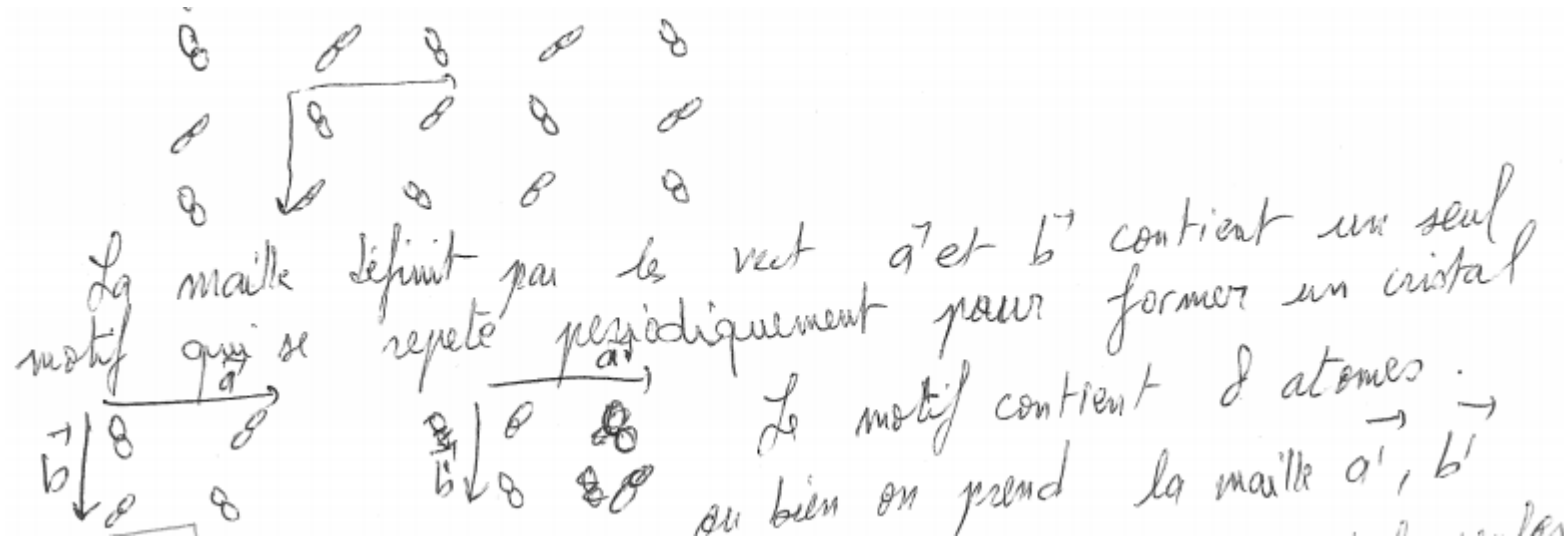 La maille définit par les vect a⃗ et b⃗ contient un seul
motif qui se repete periodiquement pour former un cristal
a⃗
a⃗'
b⃗
b⃗'
Le motif contient 8 atomes.
ou bien on prend la maille a⃗', b⃗'